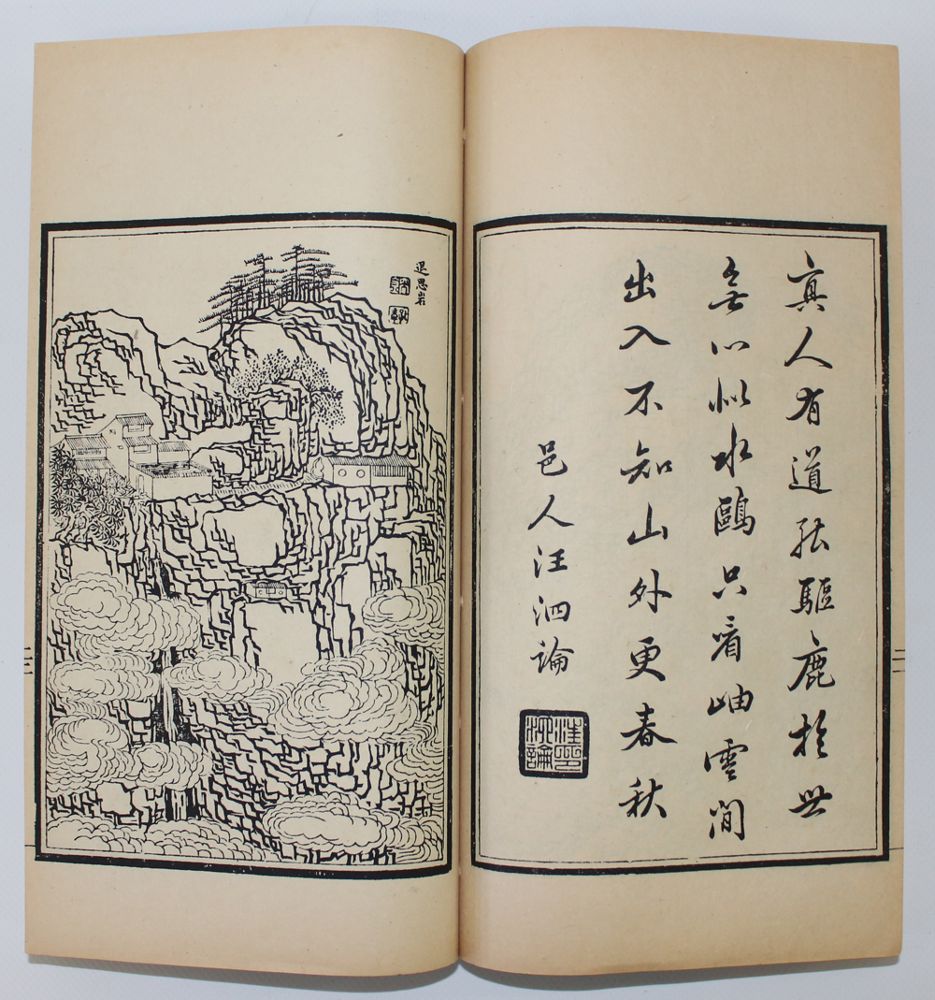 真人有道能驅鹿於世
無心似水鷗只看岫雲閒
出入不知山外更春秋
邑人汪泗論
汪印泗論
退思岩